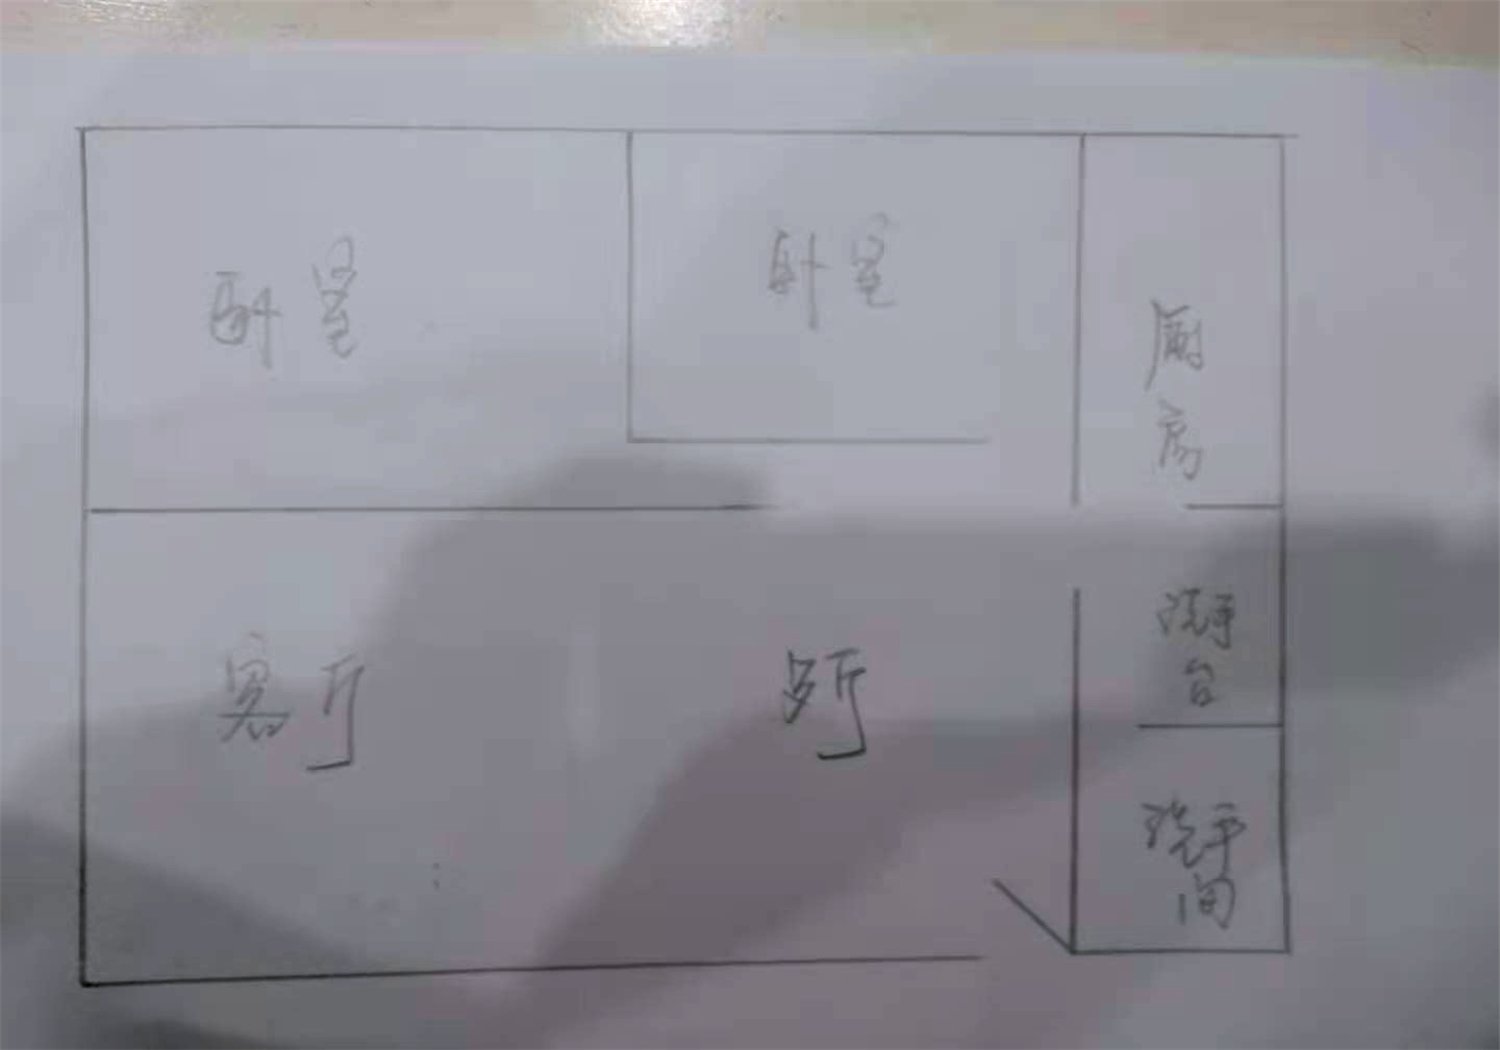 卧室
卧室
厨
房
客厅
歺厅
洗手
台
洗手
间